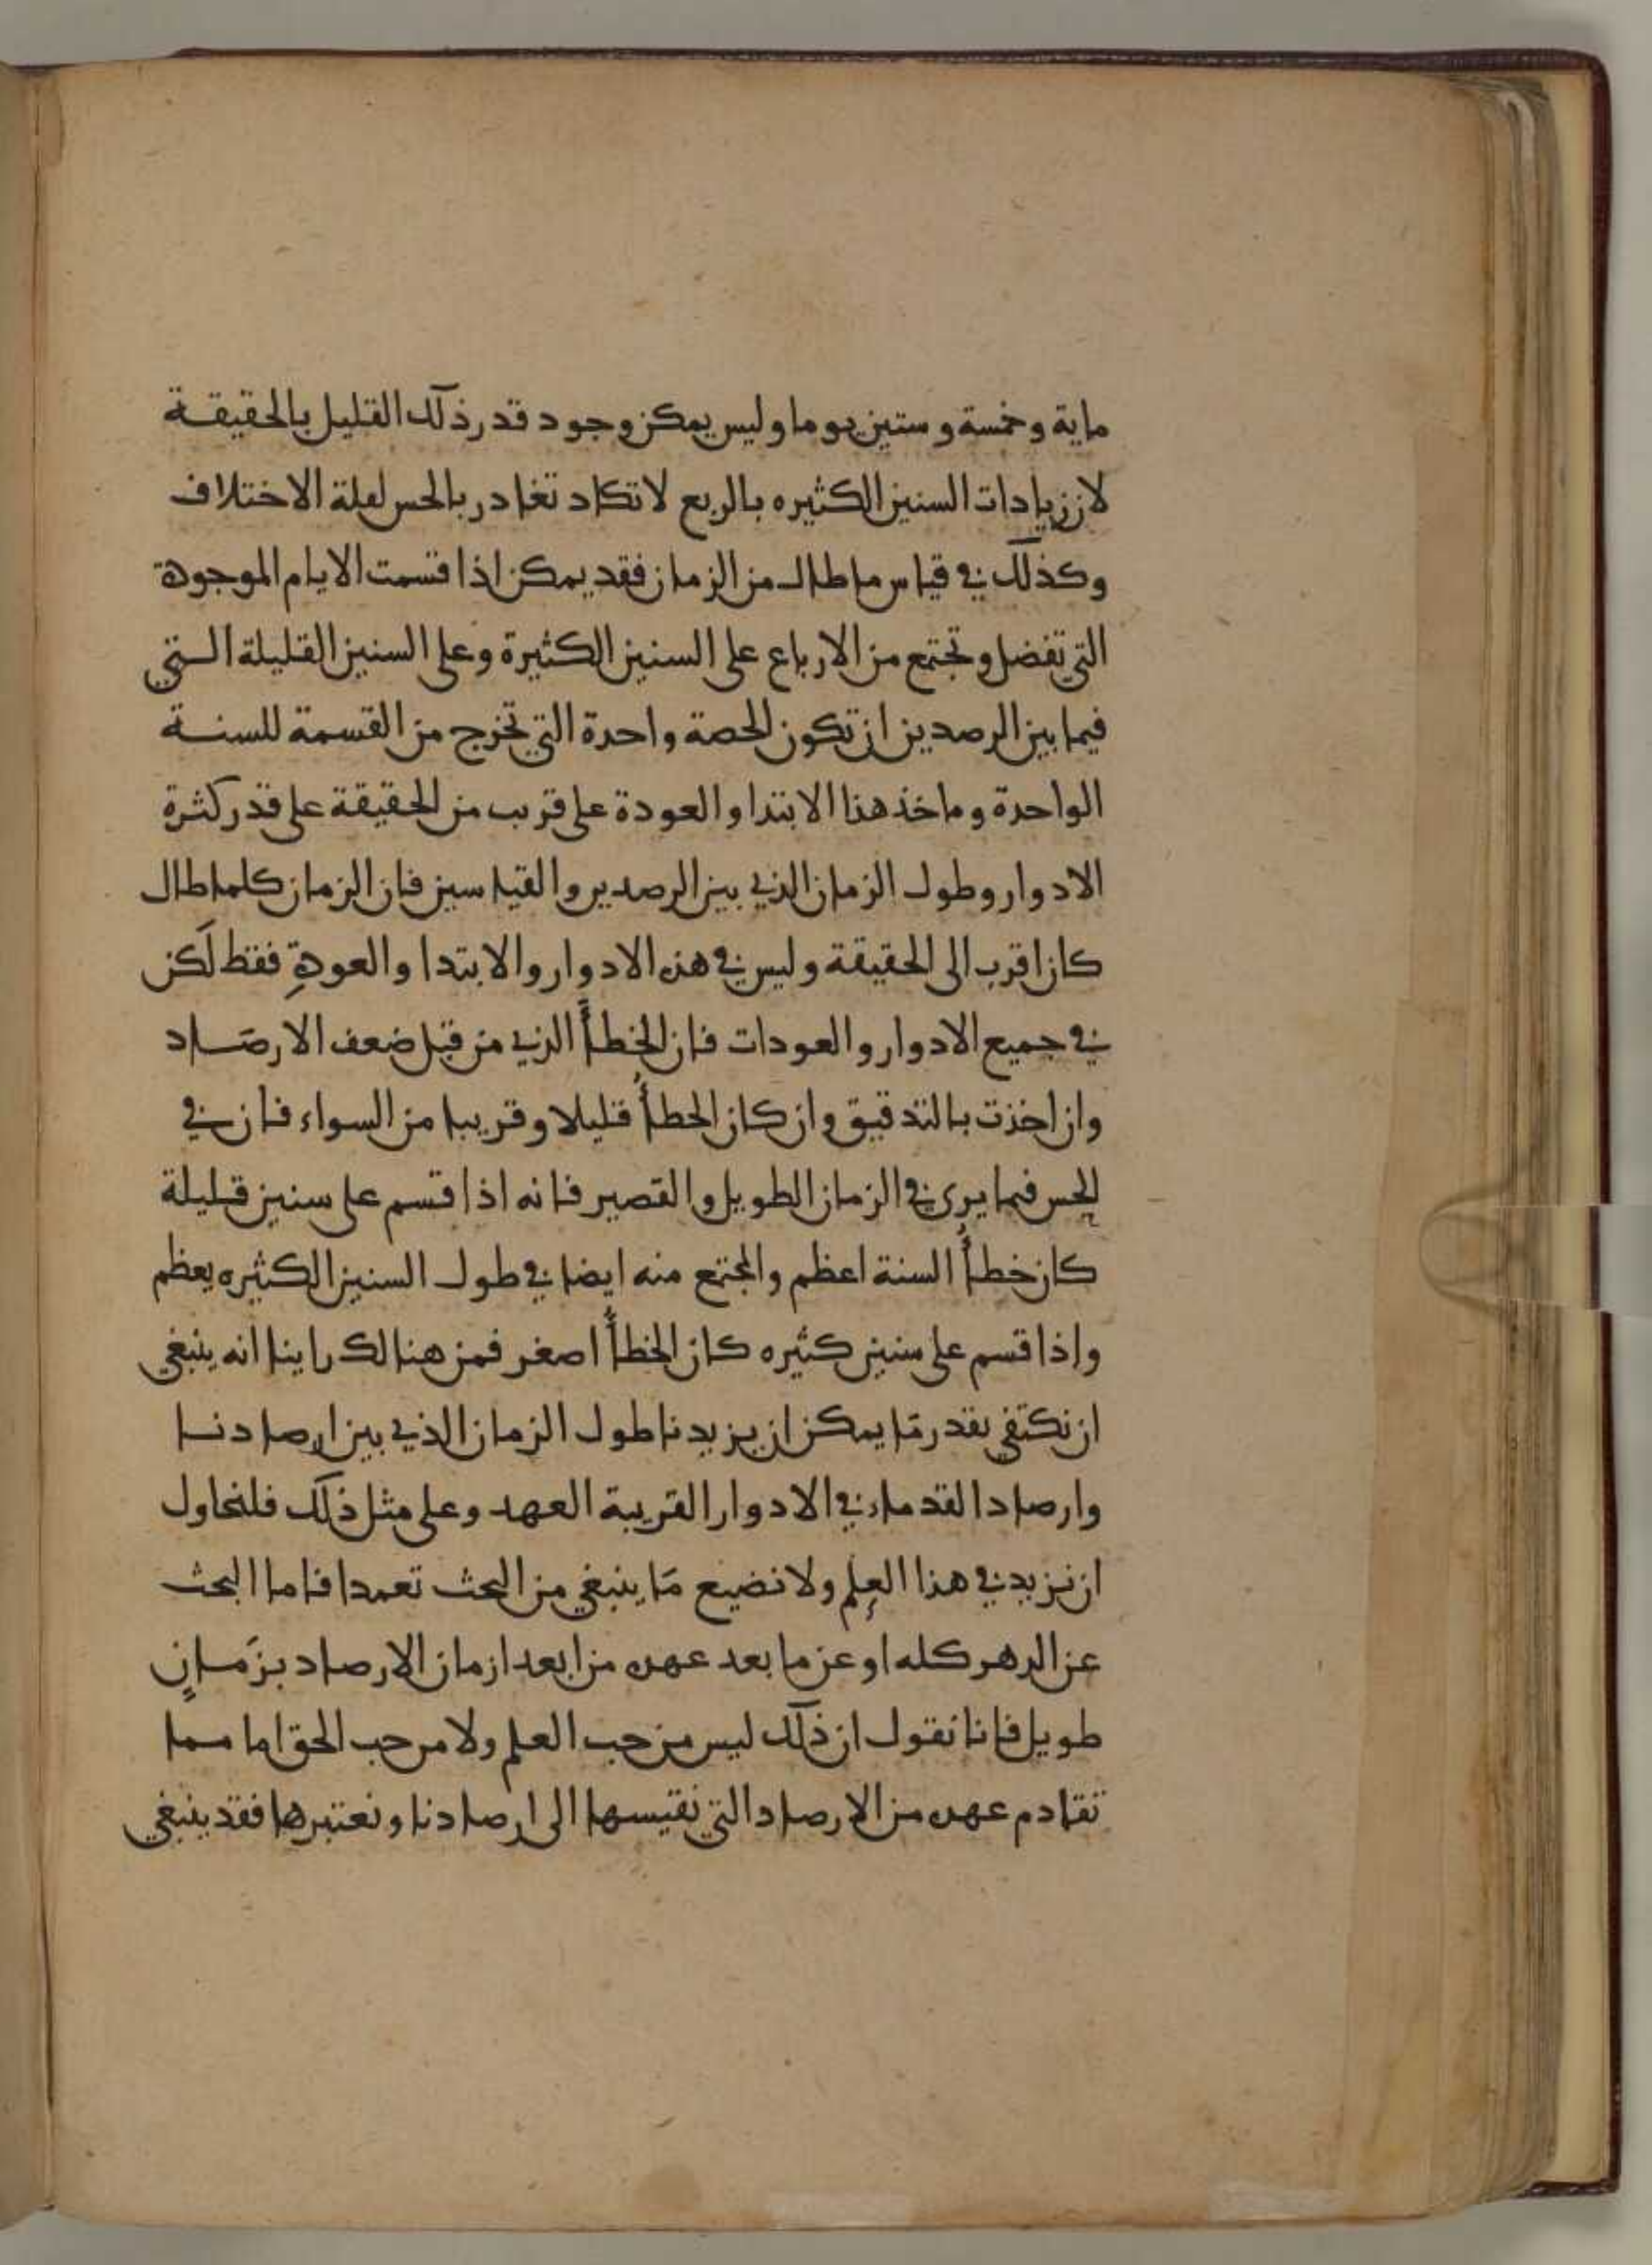 ماية وخمسة وستين يوما وليس يمكن وجود قدر ذلك القليل بالحقيقة
لان زيادات السنين الكثيره بالربع لا تكاد تغادر بالحس لعلة الاختلاف
وكذلك في قياس ما طال من الزمان فقد يمكن اذا قسمت الايام الموجودة
التي تفضل وتجتمع من الارباع على السنين الكثيرة وعلى السنين القليلة التي
فيما بين الرصدين ان تكون الحصة واحدة التي تخرج من القسمة للسنة
الواحدة وماخذ هذا الابتدا والعودة على قرب من الحقيقة على قدر كثرة
الادوار وطول الزمان الذي بين الرصدين والقياسين فان الزمان كلما طال
كان اقرب الى الحقيقة وليس في هذه الادوار والابتدا والعودةِ فقط لَكن
في جميع الادوار والعودات فان الخطأَ الذي من قبل ضعف الارصَاد
وان اخذت بالتدقيق وان كان الخطأُ قليلا وقريبا من السواء فان في
الحس فيما يرى في الزمان الطويل والقصير فانه اذا قسم على سنين قليلة
كان خطأُ السنة اعظم والمجتمع منه ايضا في طول السنين الكثيره يعظم
واذا قسم على سنين كثيره كان الخطأُ اصغر فمن هنالك راينا انه ينبغي
ان نكتفي بقدر مَا يمكن ان يزيدنا طول الزمان الذي بين ارصادنا
وارصاد القدماء في الادوار القريبة العهد وعلى مثل ذلك فلنحاول
ان نزيد في هذا العِلم ولا نضيع مَا ينبغي من البحث تعمدا فاما البحث
عن الدهر كله او عن ما بعد عهده من ابعد ازمان الارصاد بزَمانٍ
طويل فانا نقول ان ذلك ليس من حب العلم ولا من حب الحق اما مما
تقادم عهده من الارصاد التي نقيسها الى ارصادنا ونعتبرها فقد ينبغي